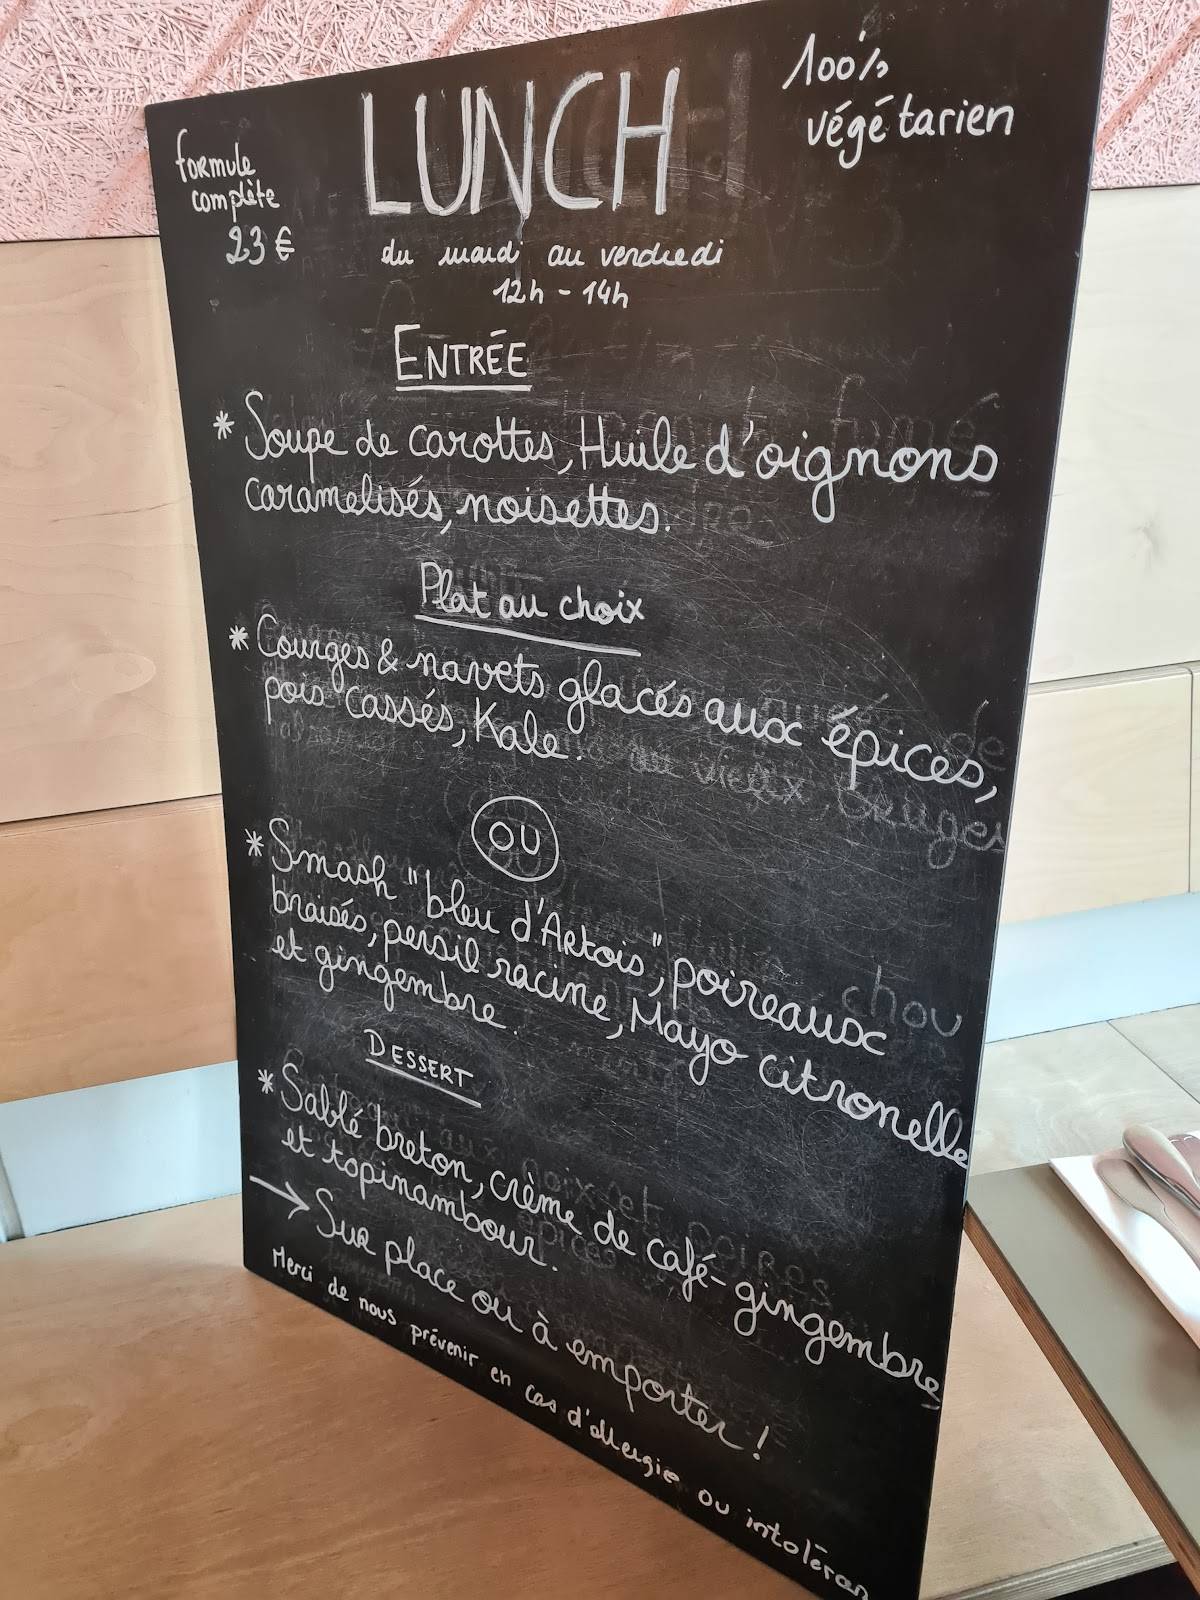 LUNCH
100%
végétarien
formule
complète
23 €
du mardi au vendredi
12h - 14h
ENTRÉE
* Soupe de carottes, Huile d'oignons
caramelisés, noisettes.
Plat au choix
* Courges & navets glacés aux épices,
pois cassés, Kale.
OU
* Smash "bleu d'Artois", poireaux
braisés, persil racine, Mayo citronelle
et gingembre.
DESSERT
* Sablé breton, crème de café-gingembre
et topinambour.
→ Sur place ou à emporter !
Merci de nous prévenir en cas d'allergie ou intoléran